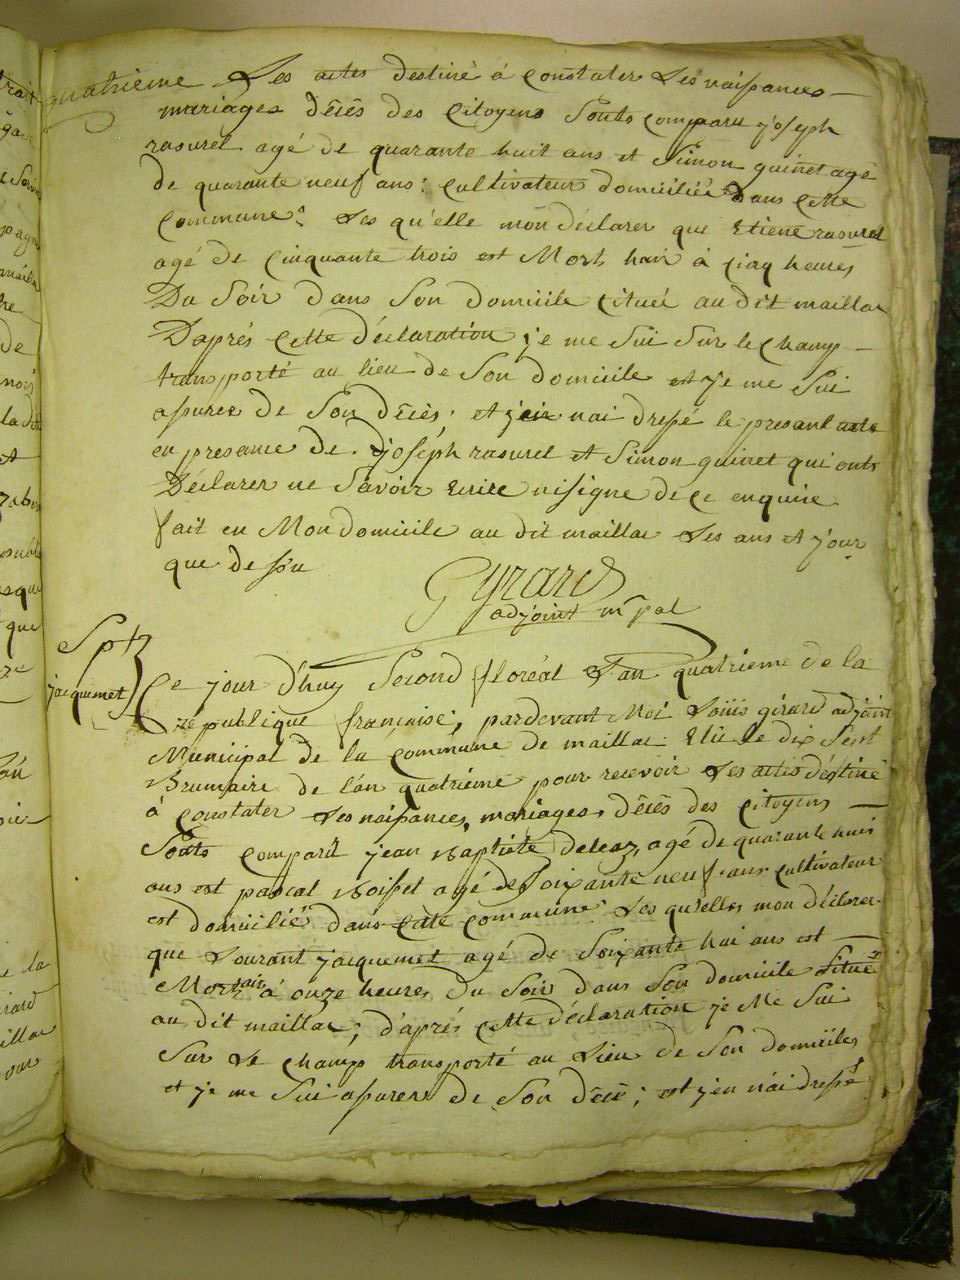 quatrieme Les actes destiné à constater Les naisances
mariages décés des Citoyens Souts comparu joseph
rasurel agé de quarante huit ans et Simon guinet agé
de quarante neuf ans; cultivateur domiciliée dans cette
commune. Les qu'elle mon déclarer que Etiene rasurel
agé de cinquante trois est Mort hair à cinq heures
Du Soir dans Son domicile cituée au dit maillac
D'aprés cette déclaration je me Sui Sur le champ
transporté au lieu de Son domicile est je me Sui
asurer de Son décès; et j'ein nai dresé le presant acte
en presance de joseph rasurel et Simon guinet qui onts
Déclarer ne Savoir Ecrire ni signe de ce enquire
fait en Mon domicile au dit maillac Les ans et jour
que dessu
Gyrard
adjoint mpal
Spt
jacquemet
Ce jour d'huy Second floréal L'an quatrieme de la
republique française, pardevant Moi Loüis girard adjoint
Municipal de la commune de maillac Elu le dix Sept
Brumaire de l'an quatriéme pour recevoir Les actes destiné
à constater Les naisances, mariages, décés des citoyens
Souts comparu jean Baptiste deleaz agé de quarante huit
ans est pascal Boisset agé de Soixante neuf ans cultivateur
est domiciliée dans cette commune Les qu'elles mon déclarer
que Lourant jacquemet agé de Soixante hui ans est
Mort air à onze heures Du Soir dans Son domicile situé
au dit maillac; d'aprés cette déclaration je Me Sui
Sur Le champ transporté au Lieu de Son domicile,
et je me Sui asurer de Son décé; est j'en nai dresé